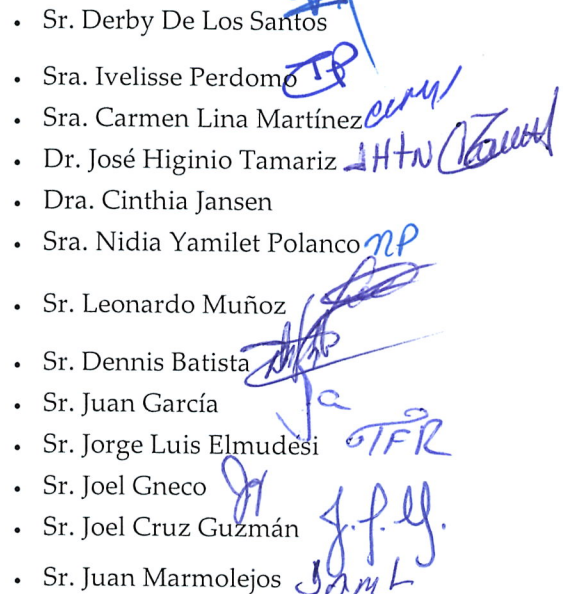 • Sr. Derby De Los Santos
• Sra. Ivelisse Perdomo
• Sra. Carmen Lina Martínez
• Dr. José Higinio Tamariz JHTN
• Dra. Cinthia Jansen
• Sra. Nidia Yamilet Polanco NP
• Sr. Leonardo Muñoz
• Sr. Dennis Batista
• Sr. Juan García
• Sr. Jorge Luis Elmudesi
• Sr. Joel Gneco
• Sr. Joel Cruz Guzmán
• Sr. Juan Marmolejos